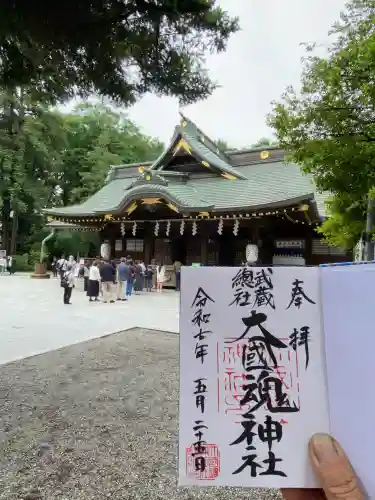 奉拝
武蔵
總社
大國魂神社
令和七年
五月二十五日